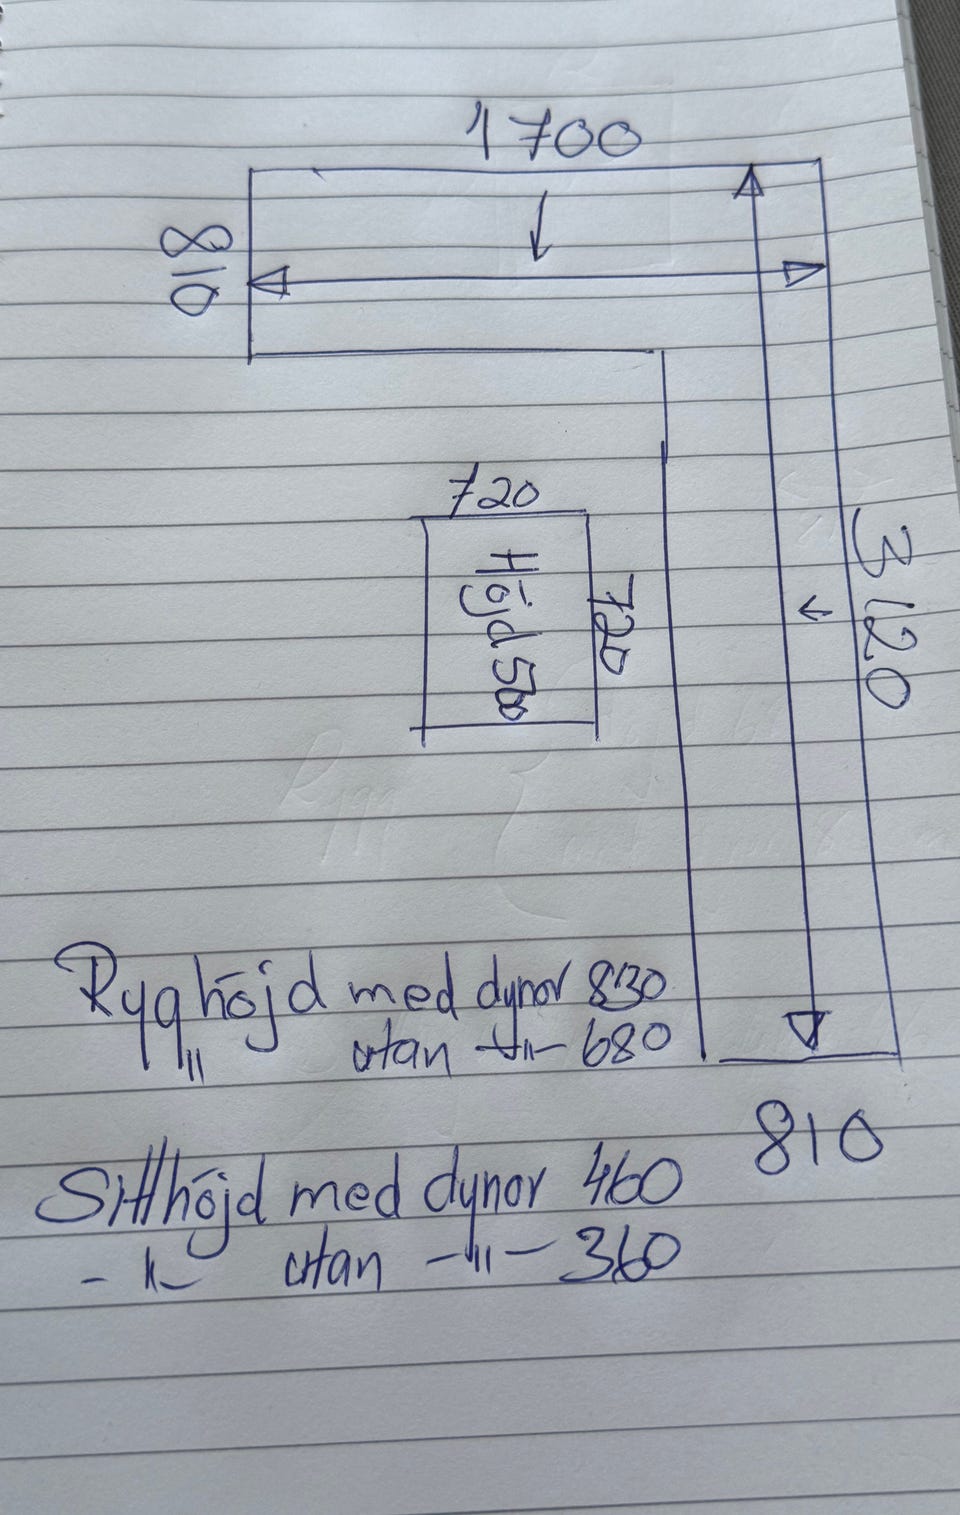 1700
810
720
Höjd 500
720
3120
Rygghöjd med dynor 830
〃 utan -〃- 680
810
Sitthöjd med dynor 460
-〃- utan -〃- 360